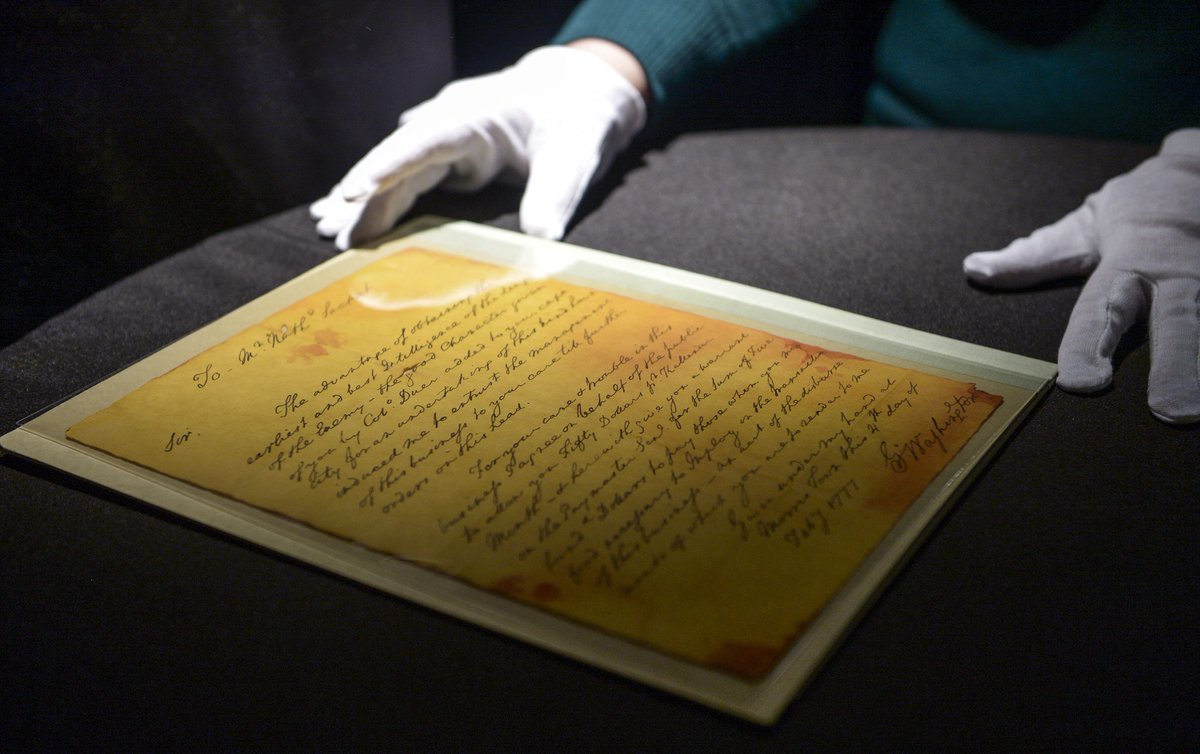 To - Mr. Nathl Sackett
Sir.
The advantage of obtaining the
earliest and best Intelligence of the designs
of the Enemy - the good Character given
of you by Colo Duer added to your capa-
city for an undertaking of this kind have
induced me to entrust the management
of this business to your care till further
orders on this head.
For your care & trouble in this
business I agree on behalf of the public
to allow you Fifty Dollars pr Kalendar
Month - & herewith give you a warrant
on the Paymaster Genl for the sum of Five
hund d Dollars to pay those whom you may
find necessary to Imploy in the transaction
of this business - an acct of the disburse
ments of which you are to render to me
Given under my hand at
Morris Town this 4th day of
Feby 1777
Go Washington